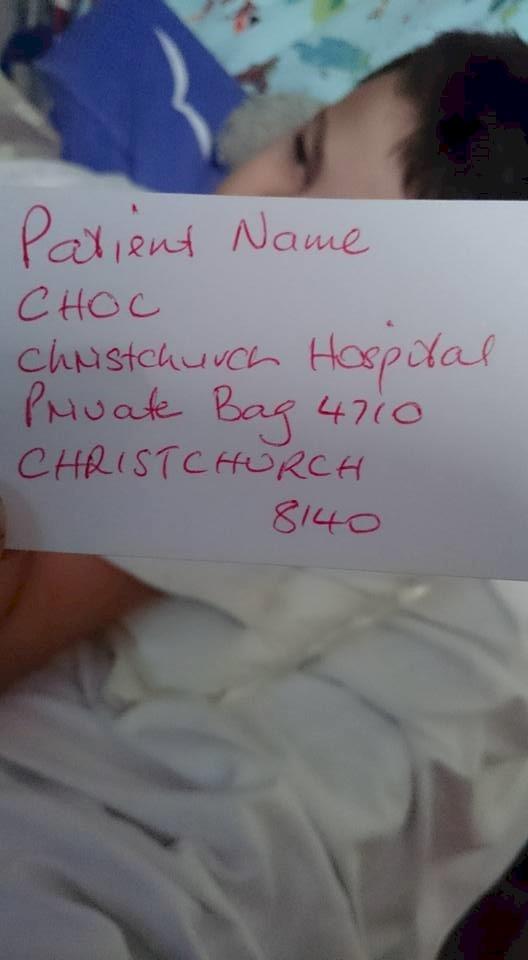 Patient Name
CHOC
Christchurch Hospital
Private Bag 4710
CHRISTCHURCH
8140